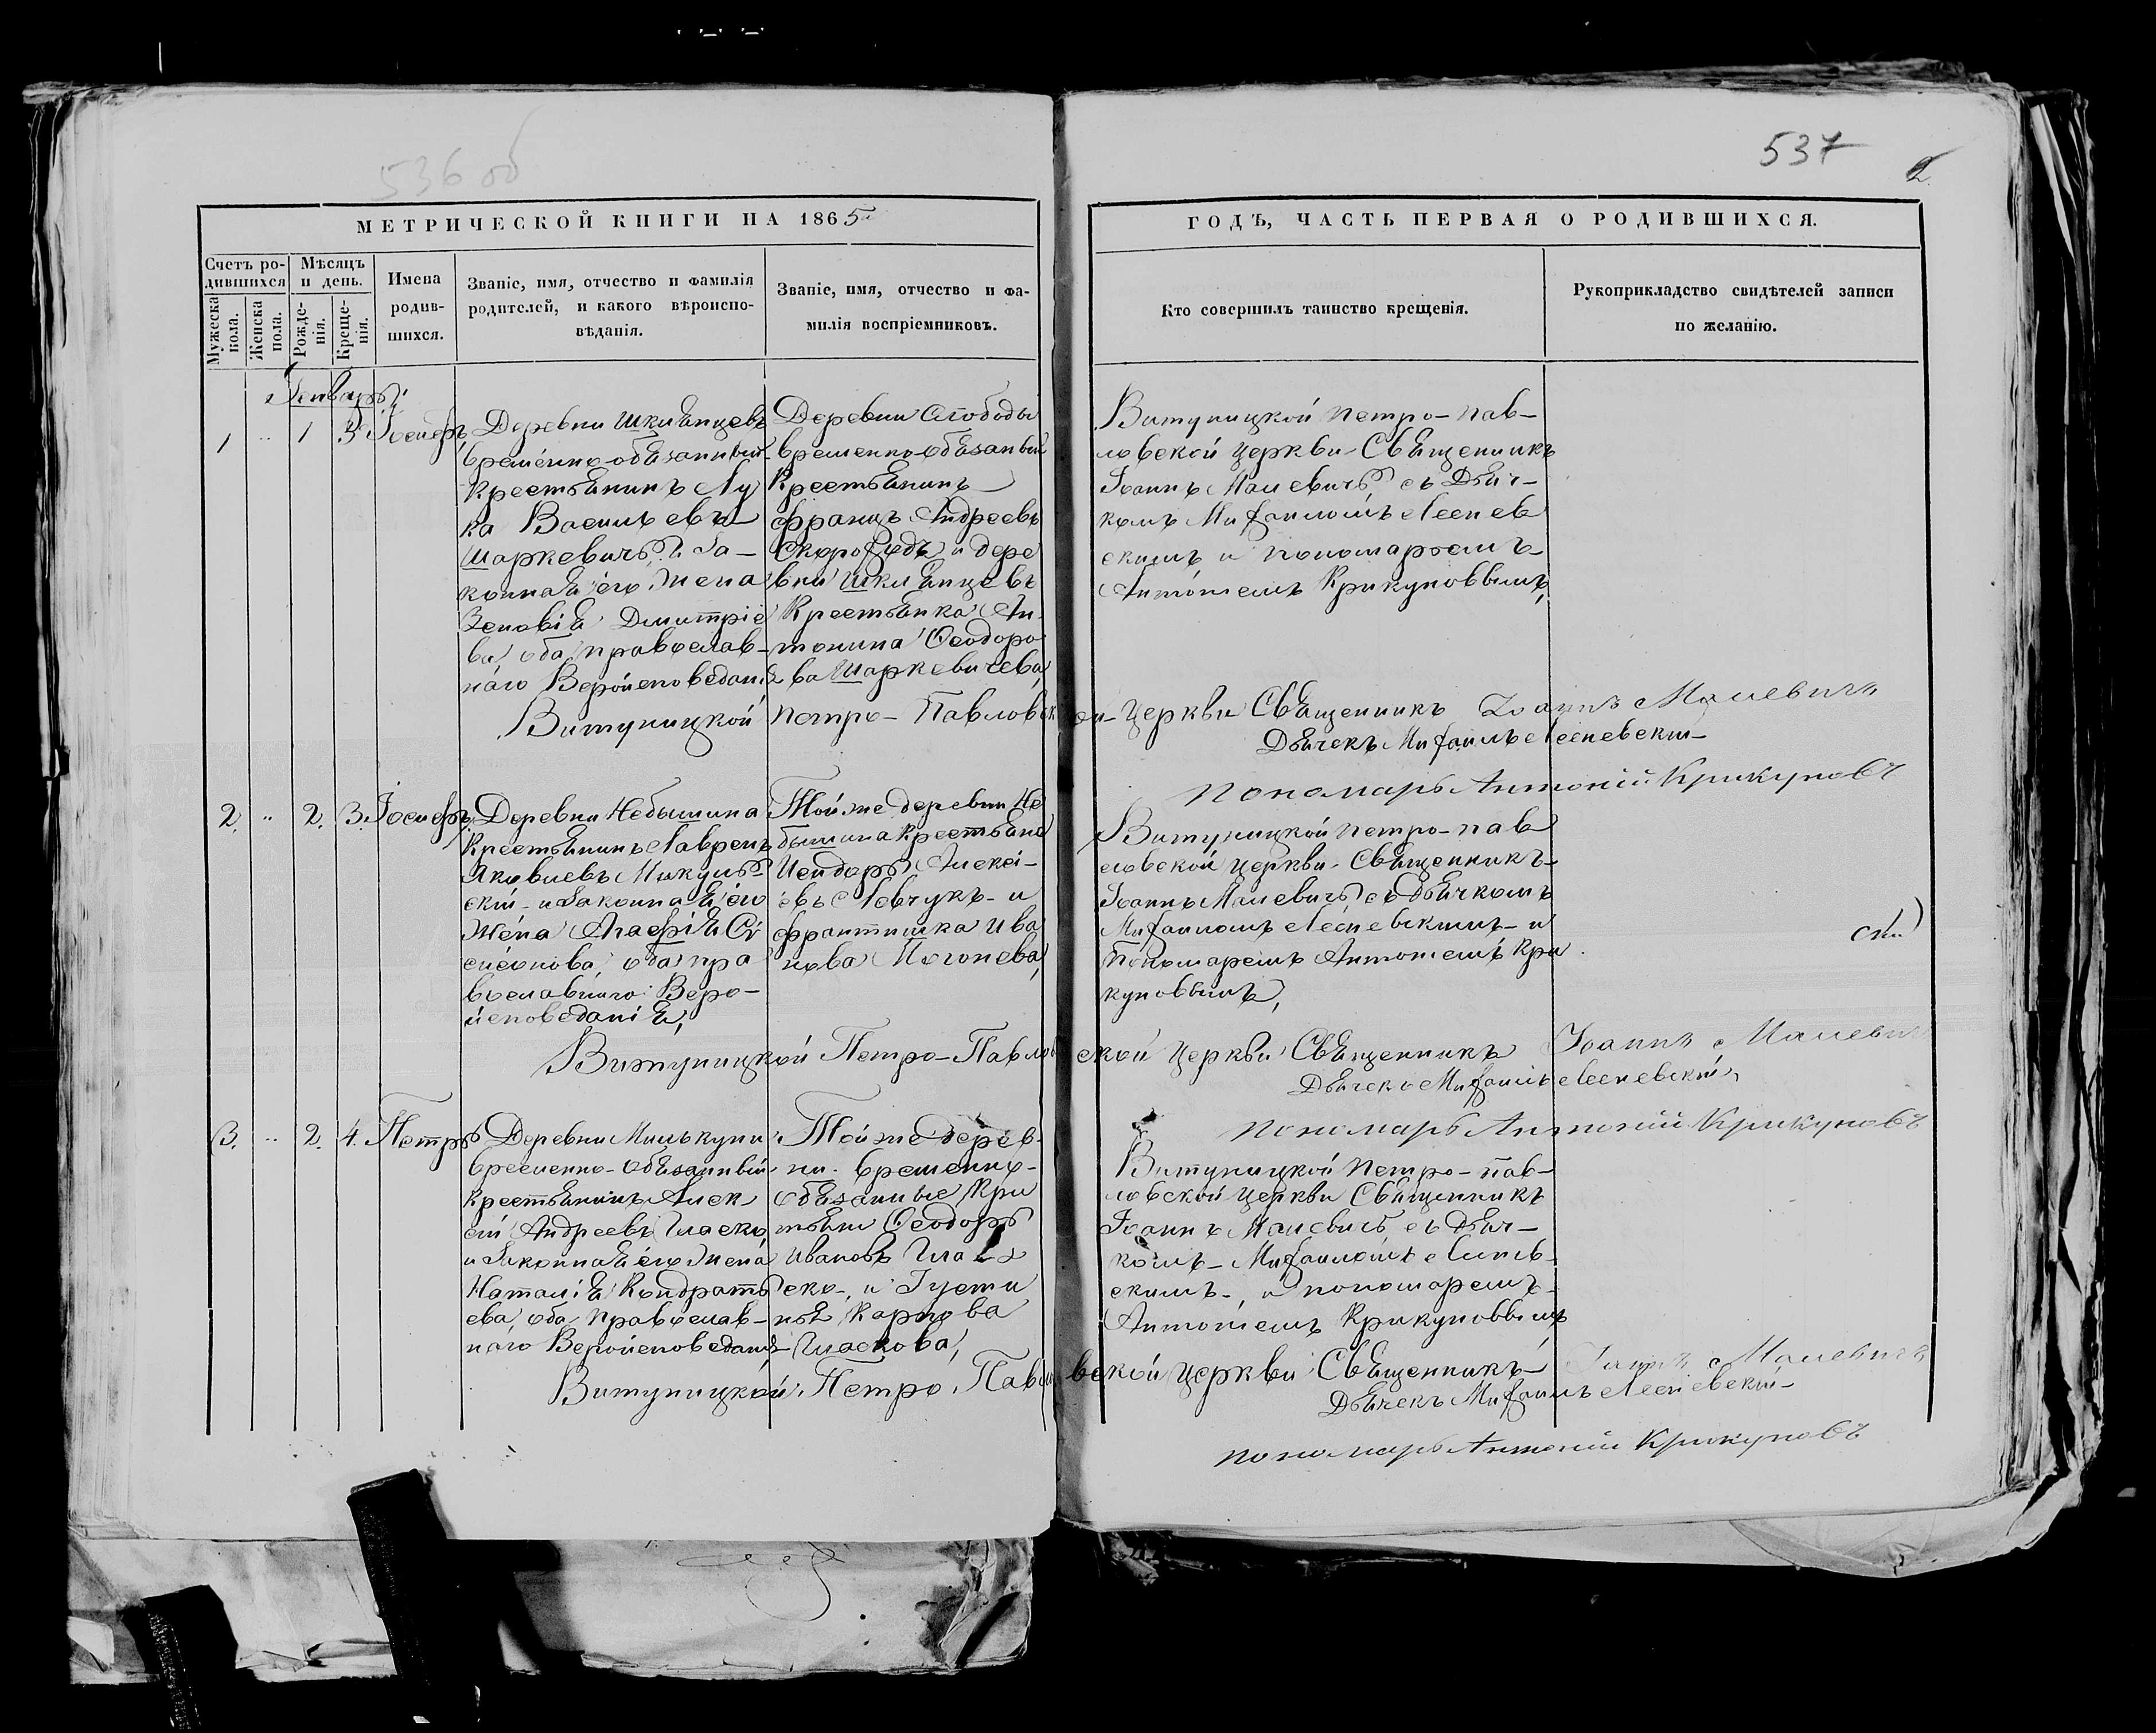 536 об
537
2
МЕТРИЧЕСКОЙ КНИГИ НА 1865
ГОДЪ, ЧАСТЬ ПЕРВАЯ О РОДИВШИХСЯ.
Счетъ ро-
дившихся
Мужеска
пола.
Женска
пола.
Мѣсяцъ
и день.
Рожде-
нія.
Креще-
нія.
Имена
родив-
шихся.
Званіе, имя, отчество и фамилія
родителей, и какого вѣроиспо-
вѣданія.
Званіе, имя, отчество и фа-
милія воспріемниковъ.
Кто совершилъ таинство крещенія.
Рукоприкладство свидѣтелей записи
по желанію.
Генварь
1 " 1 3 Іосифъ
Деревни Шклянцевъ
временно-обязанный
Крестьянинъ Лу
ка Васильевъ
Шаркевичъ, и За-
конная его жена
Зеновія Димитріе
ва, оба православ-
наго Вероисповедані
Деревни Слободы
временно-обязаный
Крестьянинъ
Францъ Андреевъ
Скороходъ и дере
вни Шклянцевъ
Крестьянка Ан-
тонина Ѳеодоро
ва Шаркевичева,
Витуницкой Петро-Пав-
ловской церкви Священникъ
Іоаннъ Малевичъ, съ Дьяч-
комъ Михаиломъ Леснев
скимъ и пономаремъ
Антоніемъ Крикуновымъ,
Витуницкой Петро-Павловской Церкви Священникъ Іоаннъ Малевичъ
Дьячекъ Михаилъ Лесневскій
Пономарь Антоній Крикуновъ
2. " 2. 3. Іосифъ
Деревни Небышина
Крестьянинъ Лаврен
Яковлевъ Микуль
скій и Законная его
жена Агафія Си
меонова, оба пра
вославнаго Веро-
исповеданія,
Той же деревни Не
бышина Крестьяне
Исидоръ Алексі-
евъ Левчукъ и
Франтишка Ива
нова
Витуницкой Петро-Пав
ловской церкви Священникъ
Іоаннъ Малевичъ, съ Дьячкомъ
Михаиломъ Лесневскимъ и
Пономаремъ Антоніемъ Кри
куновымъ,
Витуницкой Петро-Павловской Церкви Священникъ Іоаннъ Малевичъ
Дьячекъ Михаилъ Лесневскій
Пономарь Антоній Крикуновъ
3. " 2. 4. Петръ
Деревни Милькуни
временно-обязанный
Крестьянинъ Алек
сій Андреевъ Шаско
и Законная его жена
Наталія Кондрать
ева, оба православ-
наго Вероисповедані
Той же дерев-
ни временно-
обязанные Кри
тьяни Ѳеодоръ
Ивановъ Ша
ско, и Густи
на Карпова
Шаскова,
Витуницкой Петро-Пав-
ловской Церкви Священникъ
Іоаннъ Малевичъ съ Дьяч-
комъ Михаиломъ Леснев-
скимъ, и пономаремъ
Антоніемъ Крикуновымъ
Витуницкой Петро-Павловской церкви Священникъ Іоаннъ Малевичъ
Дьячекъ Михаилъ Лесневскій
Пономарь Антоній Крикуновъ